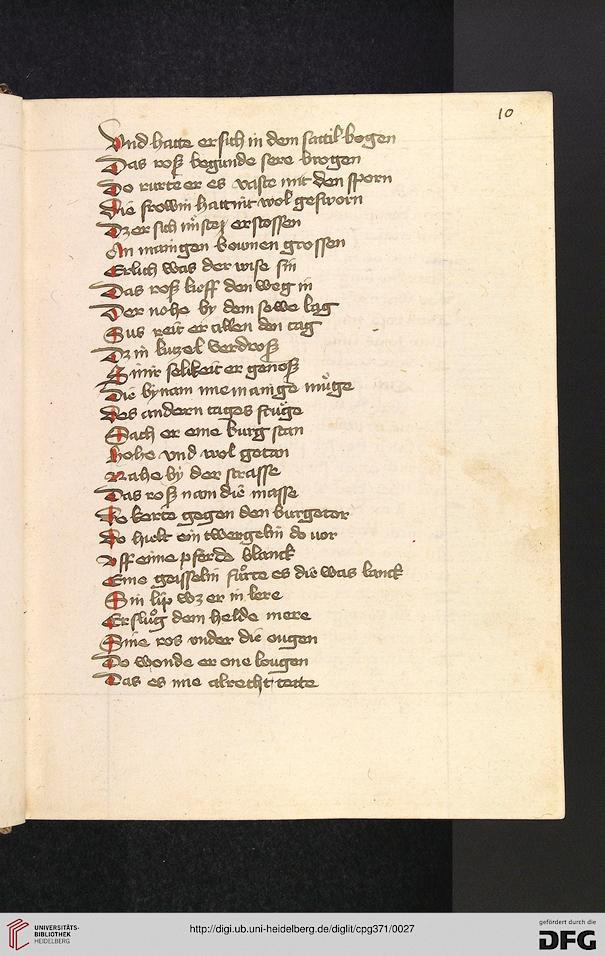 10
Vnd hatte er sich in dem sattil bogen
Das roß begunde sere brogen
Do rurte er es vaste mit den sporn
Die frowin hattint wol gesworn
Dz er sich müste erstossen
An manigen bowmen grossen
Erlich was der wise sin
Das roß lieff den weg in
Der nohe by dem sewe lag
Sus reit er allen den tag
Dz in luzel verdroß
Sinir selikeit er genoß
Die bynam ime manige müge
Des andern tages fruͦge
Sach er eine burg stan
Hohe vnd wol getan
Nahe by der strasse
Das roß nam die masse
Do kerte gegen den burgetor
Do hielt ein twergelin do vor
Vff eime pferde blanck
Eine geisselin fuͦrte es die was lanck
Sin lip wz er in lere
Er sluͦg dem helde mere
Sine ros vnder die ougen
Do wonde er one lougen
Das es ime alrecht tette
UNIVERSITÄTS-
BIBLIOTHEK
HEIDELBERG
http://digi.ub.uni-heidelberg.de/diglit/cpg371/0027
gefördert durch die
DFG